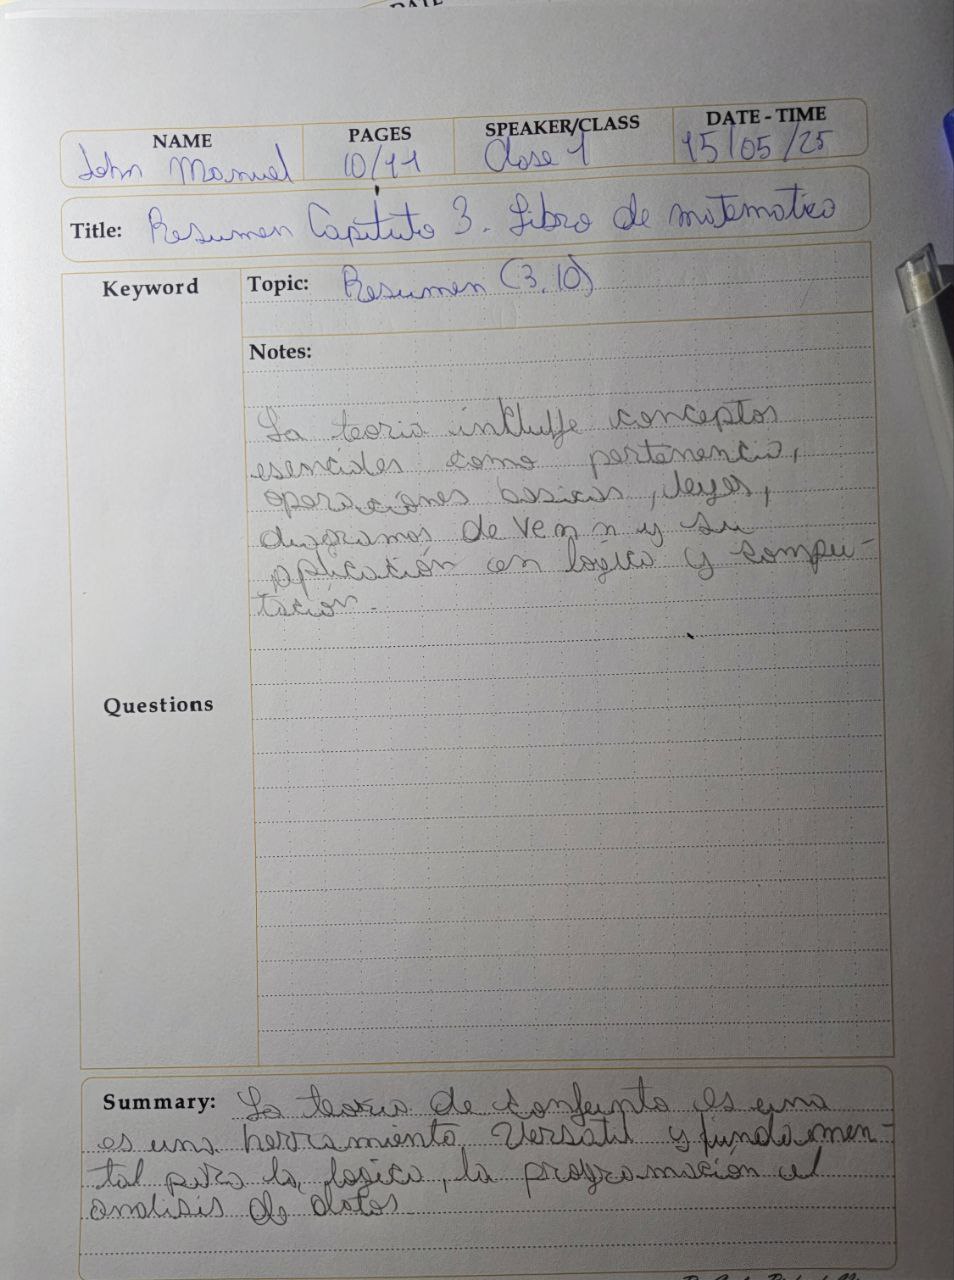 DATE
NAME PAGES SPEAKER/CLASS DATE - TIME
John Manuel 10/11 Clase 1 15/05/25
Title: Resumen Capituto 3. Libro de matematica
Keyword Topic: Resumen (3.10)
Notes:
La teoria inkluye conceptos
esenciales como pertenencia,
operaciones basicas, leyes,
diagramas de venn y su
aplicación en lógica y compu-
tación.
Questions
Summary: La teoria de conjunto es una
es una herramienta versatil y fundamen-
tal para la logica, la programación el
analisis de datos